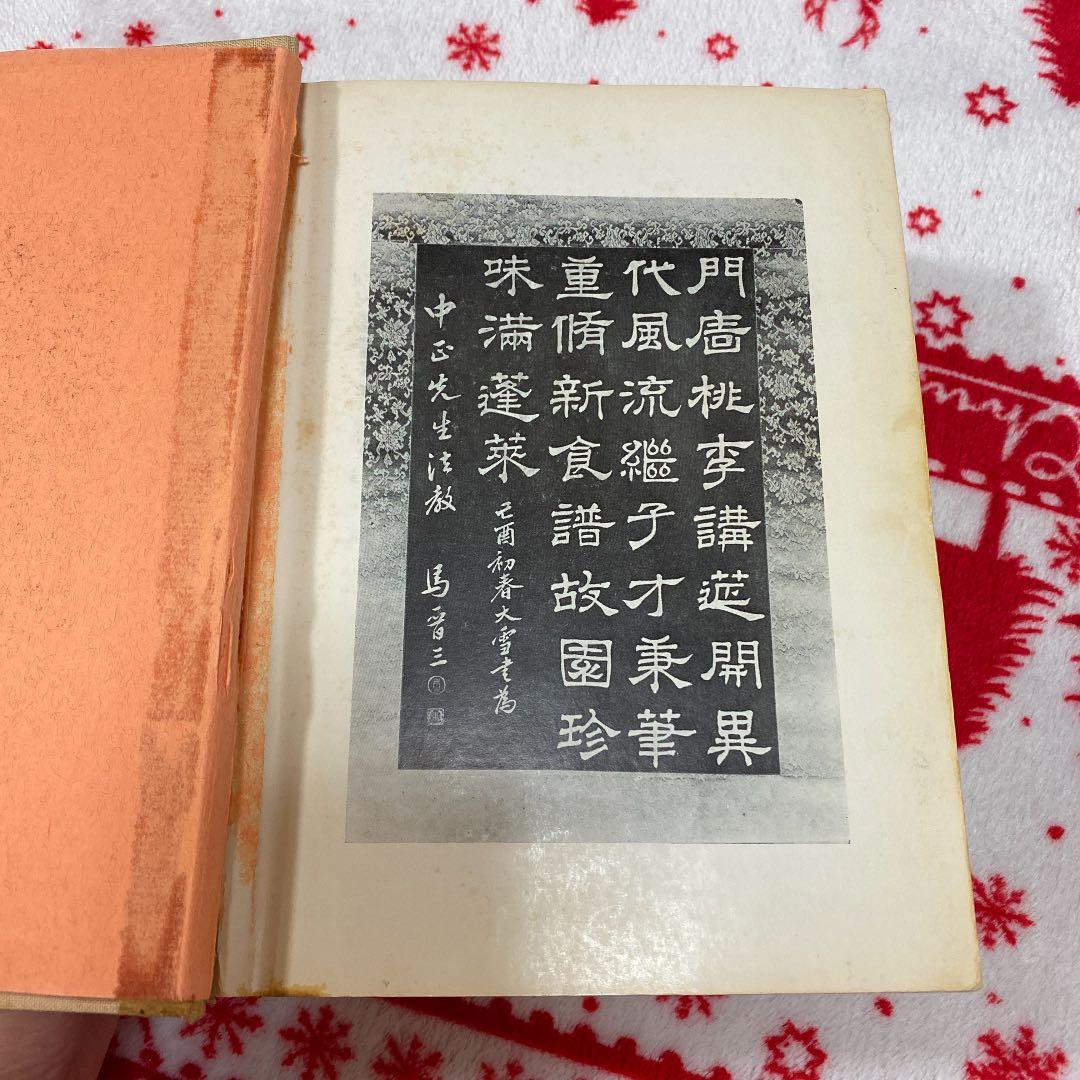 門桃李講莚開異
代風流繼子才秉筆
重脩新食譜故園珍
味滿蓬萊 己酉初春大雪書為
中正先生法教 馬晉三